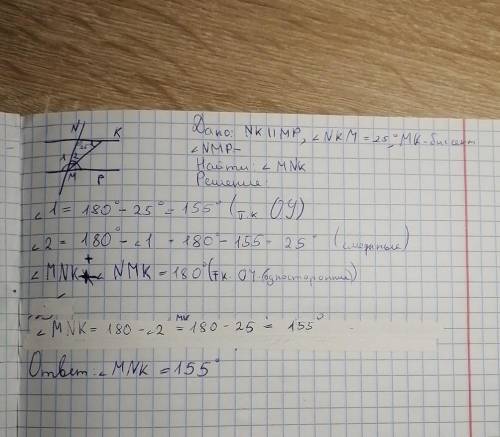 N K
25°
1 2
M P
Дано: NK || MP, ∠NKM = 25°, MK-биссект
∠NMP-
Найти: ∠MNK
Решение:
∠1 = 180° - 25° = 155° (т.к ОУ)
∠2 = 180° - ∠1 = 180° - 155 = 25° (смежные)
∠MNK + ∠NMK = 180° (т.к. ОУ-односторонние)
∠MNK = 180 - ∠2° = 180 - 25° = 155°
Ответ: ∠MNK = 155°